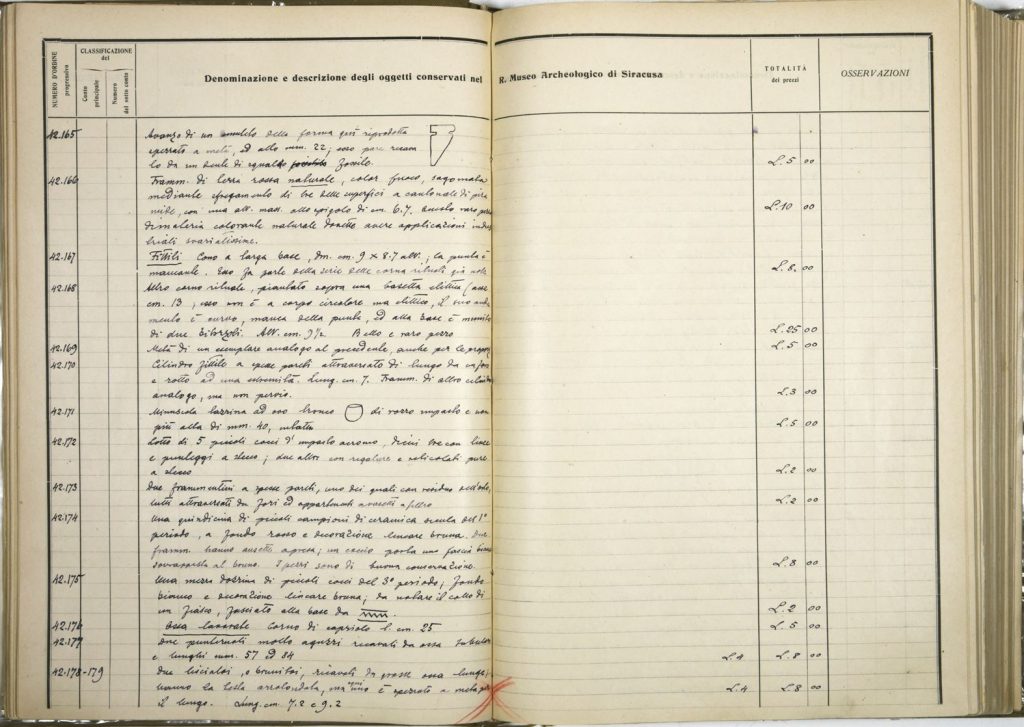 NUMERO D'ORDINE progressivo
CLASSIFICAZIONE del
Conto principale
Numero del sotto conto
Denominazione e descrizione degli oggetti conservati nel R. Museo Archeologico di Siracusa
TOTALITÀ dei prezzi
OSSERVAZIONI
42.165 Avanzo di un della forma già riprodotta
spezzato a metà, ed alto mm. 22; esso pare ricava
to da un dente di fossile. L. 5 00
42.166 Framm. di terra rossa naturale, color fuoco, sagomata
mediante sfregamento di tre delle superfici a cantonale di pira
mide, con una alt. mass. allo spigolo di cm. 6.7. raro pezzo L. 10 00
di materia colorante naturale dovette avere applicazioni indus
triali svariatissime.
42.167 Fittili Cono a larga base, dm. cm. 9 x 8.7 alt.; la punta è
mancante. Esso fa parte della serie delle corna rituali già note L. 8. 00
42.168 Altro corno rituale, piantato sopra una basetta ellittica (asse
cm. 13, esso non è a corpo circolare ma ellittico, il suo
è curvo, manca della punta, ed alla base è munito
di due. Alt. cm. 9 1/2 Bello e raro pezzo L. 25 00
42.169 Metà di un esemplare analogo al precedente, anche per le propor L. 5 00
42.170 Cilindro fittile a spesse pareti attraversato di lungo da un foro
e rotto ad una estremità. Lung. cm. 7. Framm. di altro cilindro
analogo, ma non pervio. L. 3 00
42.171 Minuscola tazzina ad ovo tronco di rozzo impasto e non
più alta di mm. 40, L. 5 00
42.172 Lotto di 5 piccoli cocci d'impasto, tre con linee
e punteggi a stecco; due altri con e reticolati pure
a stecco L. 2 00
42.173 Due frammentini a spesse pareti, uno dei quali con residuo dell'orlo,
tutti attraversati da fori ed appartenenti a vasetti a filtro L. 2 00
42.174 Una quindicina di piccoli campioni di ceramica sicula del 1°
periodo, a fondo rosso e decorazione lineare bruna. Due
framm. hanno ansette; un coccio porta una fascia bianca
sovrapposta al bruno. I pezzi sono di buona conservazione. L. 8 00
42.175 Una mezza dozzina di piccoli cocci del 3° periodo; fondo
bianco e decorazione lineare bruna; da notare il collo di
un fiasco, fasciato alla base da L. 2 00
42.176 Ossa lavorate Corno di capriolo l. cm. 25 L. 5 00
42.177 Due punteruoli molto aguzzi ricavati da ossa
e lunghi mm. 57 ed 84 L. 4 L. 8 00
42.178-179 Due lisciatoi, o brunitoi, ricavati da grosse ossa lunghe;
hanno la testa arrotondata, ma ogni uno è spezzato a metà per L. 4 L. 8 00
il lungo. Lung. cm. 7.2 e 9.2